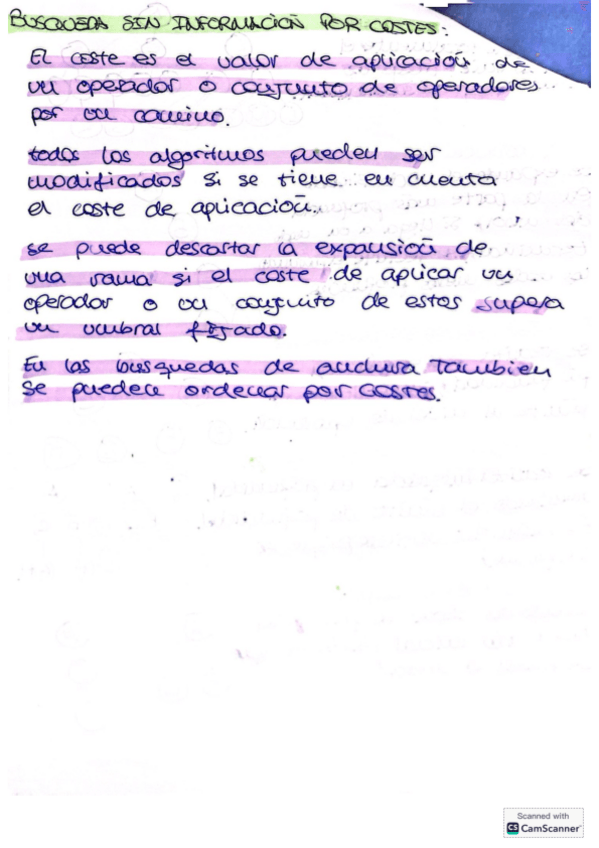 BUSQUEDA SIN INFORMACION POR COSTES:
El coste es el valor de aplicación de
un operador o conjunto de operadores
por un camino.
todos los algoritmos pueden ser
modificados si se tiene en cuenta
el coste de aplicación.
se puede descartar la expansión de
una rama si el coste de aplicar un
operador o un conjunto de estos supera
un umbral fijado.
En las busquedas de anchura también
se pueden ordenar por COSTES.
Scanned with
CS CamScanner